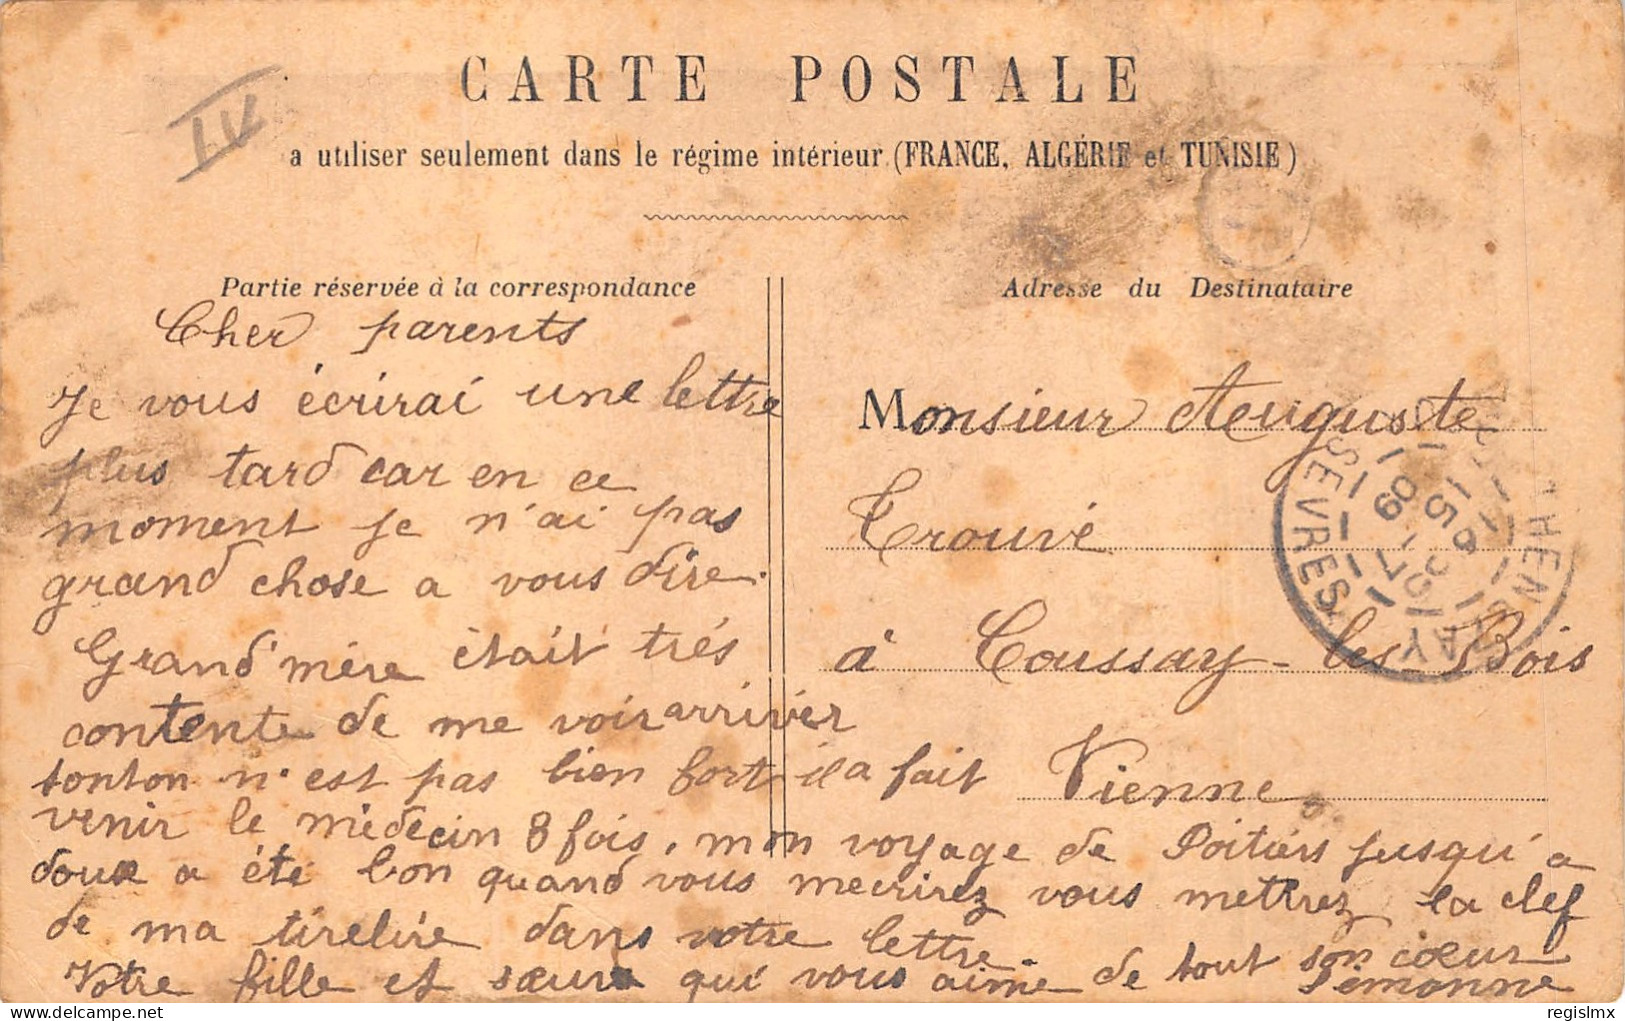 IV
CARTE POSTALE
a utiliser seulement dans le régime intérieur (FRANCE, ALGÉRIE et TUNISIE)
Partie réservée à la correspondance
Cher parents
Je vous écrirai une lettre
plus tard car en ce
moment je n'ai pas
grand chose a vous dire.
Grand'mére était trés
contente de me voir arriver
tonton n'est pas bien fort il a fait
venir le médecin 8 fois, mon voyage de Poitiers jusqu'a
doux a été bon quand vous mecrirez vous mettrez la clef
de ma tirelire dans votre lettre.
Votre fille et sœur qui vous aime de tout son cœur
Simonne
Adresse du Destinataire
Monsieur Auguste
Trouvé
à Coussay-les-Bois
Vienne
SEVRES
15 09
regislmx
delcampe.net